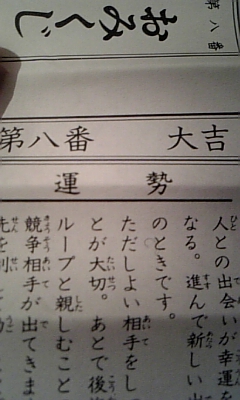 第八番
おみくじ
第八番 大吉
運勢
人との出会いが幸運を
なる。進んで新しい出
のときです。
ただしよい相手をし
とが大切。あとで後
ループと親しむこと
競争相手が出てきま